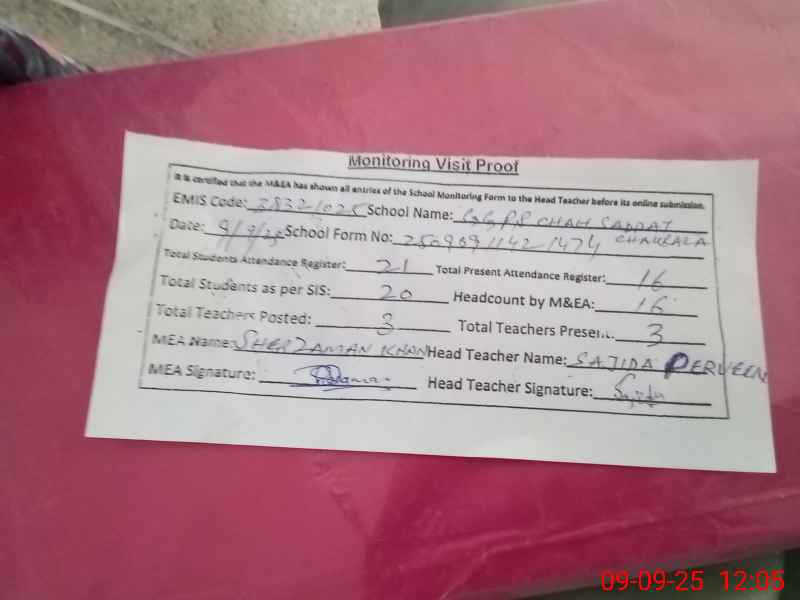 Monitoring Visit Proof
It is certified that the M&EA has shown all entries of the School Monitoring Form to the Head Teacher before its online submission.
EMIS Code: 38321025 School Name: GGPS CHAH SADDAT
Date: 9/9/25 School Form No: 25090911421474 CHAKRALA
Total Students Attendance Register: 21 Total Present Attendance Register: 16
Total Students as per SIS: 20 Headcount by M&EA: 16
Total Teachers Posted: 3 Total Teachers Present: 3
MEA Name: SHERZAMAN KHAN Head Teacher Name: SAJIDA PERVEEN
MEA Signature: Head Teacher Signature: Sajida
09-09-25 12:05